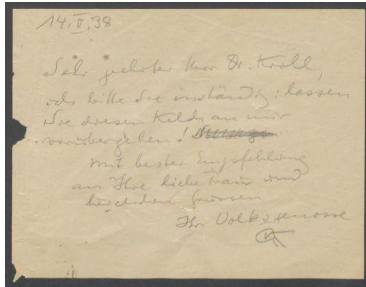 14.V.38
Sehr geehrter Herr Dr. Kroll,
ich bitte Sie inständig: lassen
Sie diesen Kelch an mir
vorübergehen!
Mit bester Empfehlung
an Ihre liebe Frau und
herzlichen Grüssen
Ihr Volksgenosse